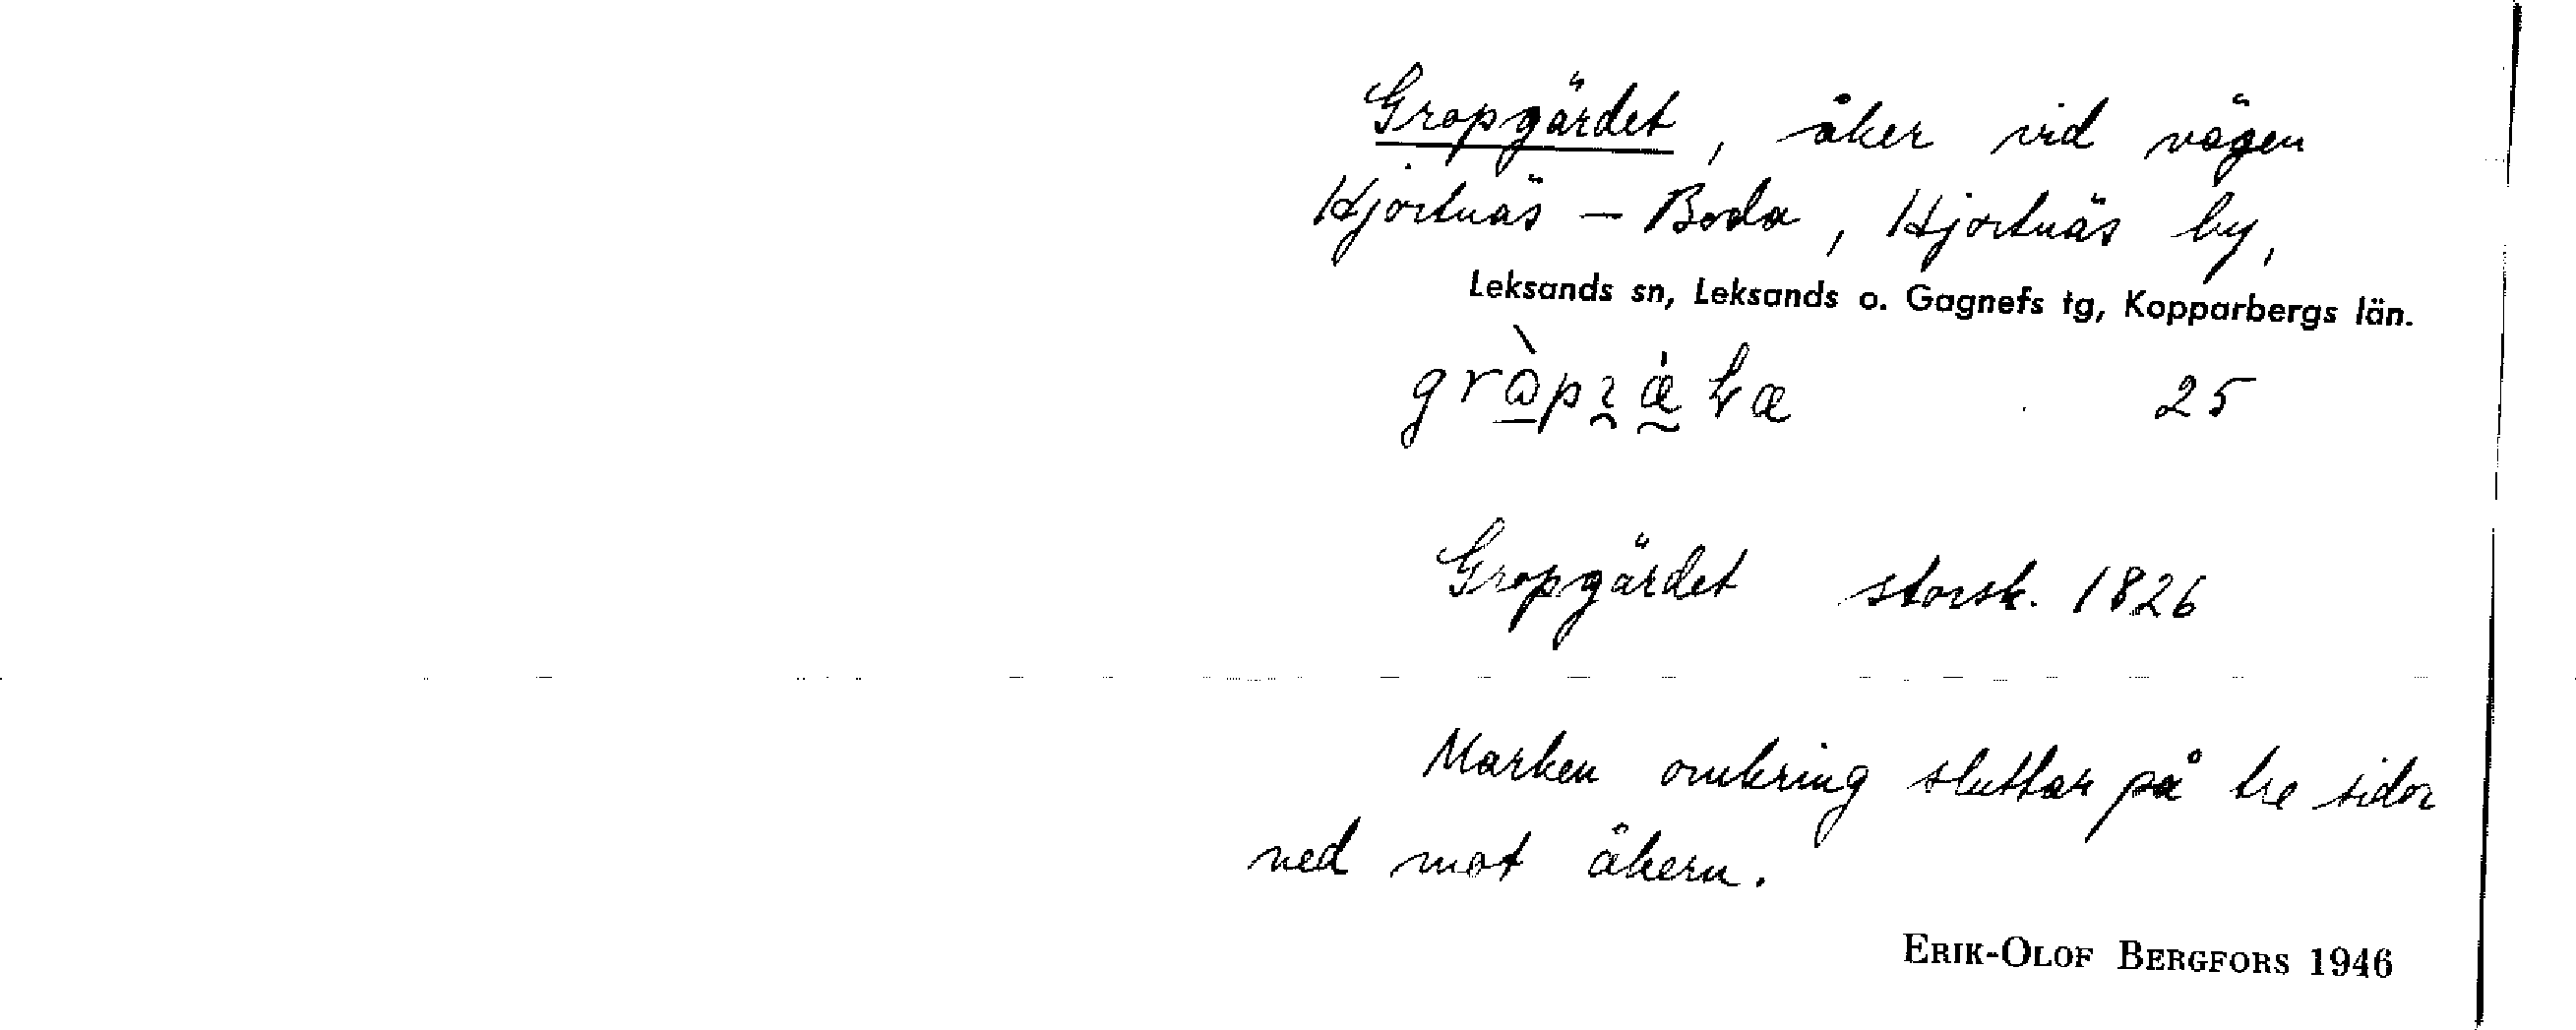 Gropgärdet, åker vid vägen
Hjortnäs – Boda, Hjortnäs by,
Leksands sn, Leksands o. Gagnefs tg, Kopparbergs län.
25
Gropgärdet storsk. 1826
Marken omkring sluttar på tre sidor
ned mot åkern.
ERIK-OLOF BERGFORS 1946